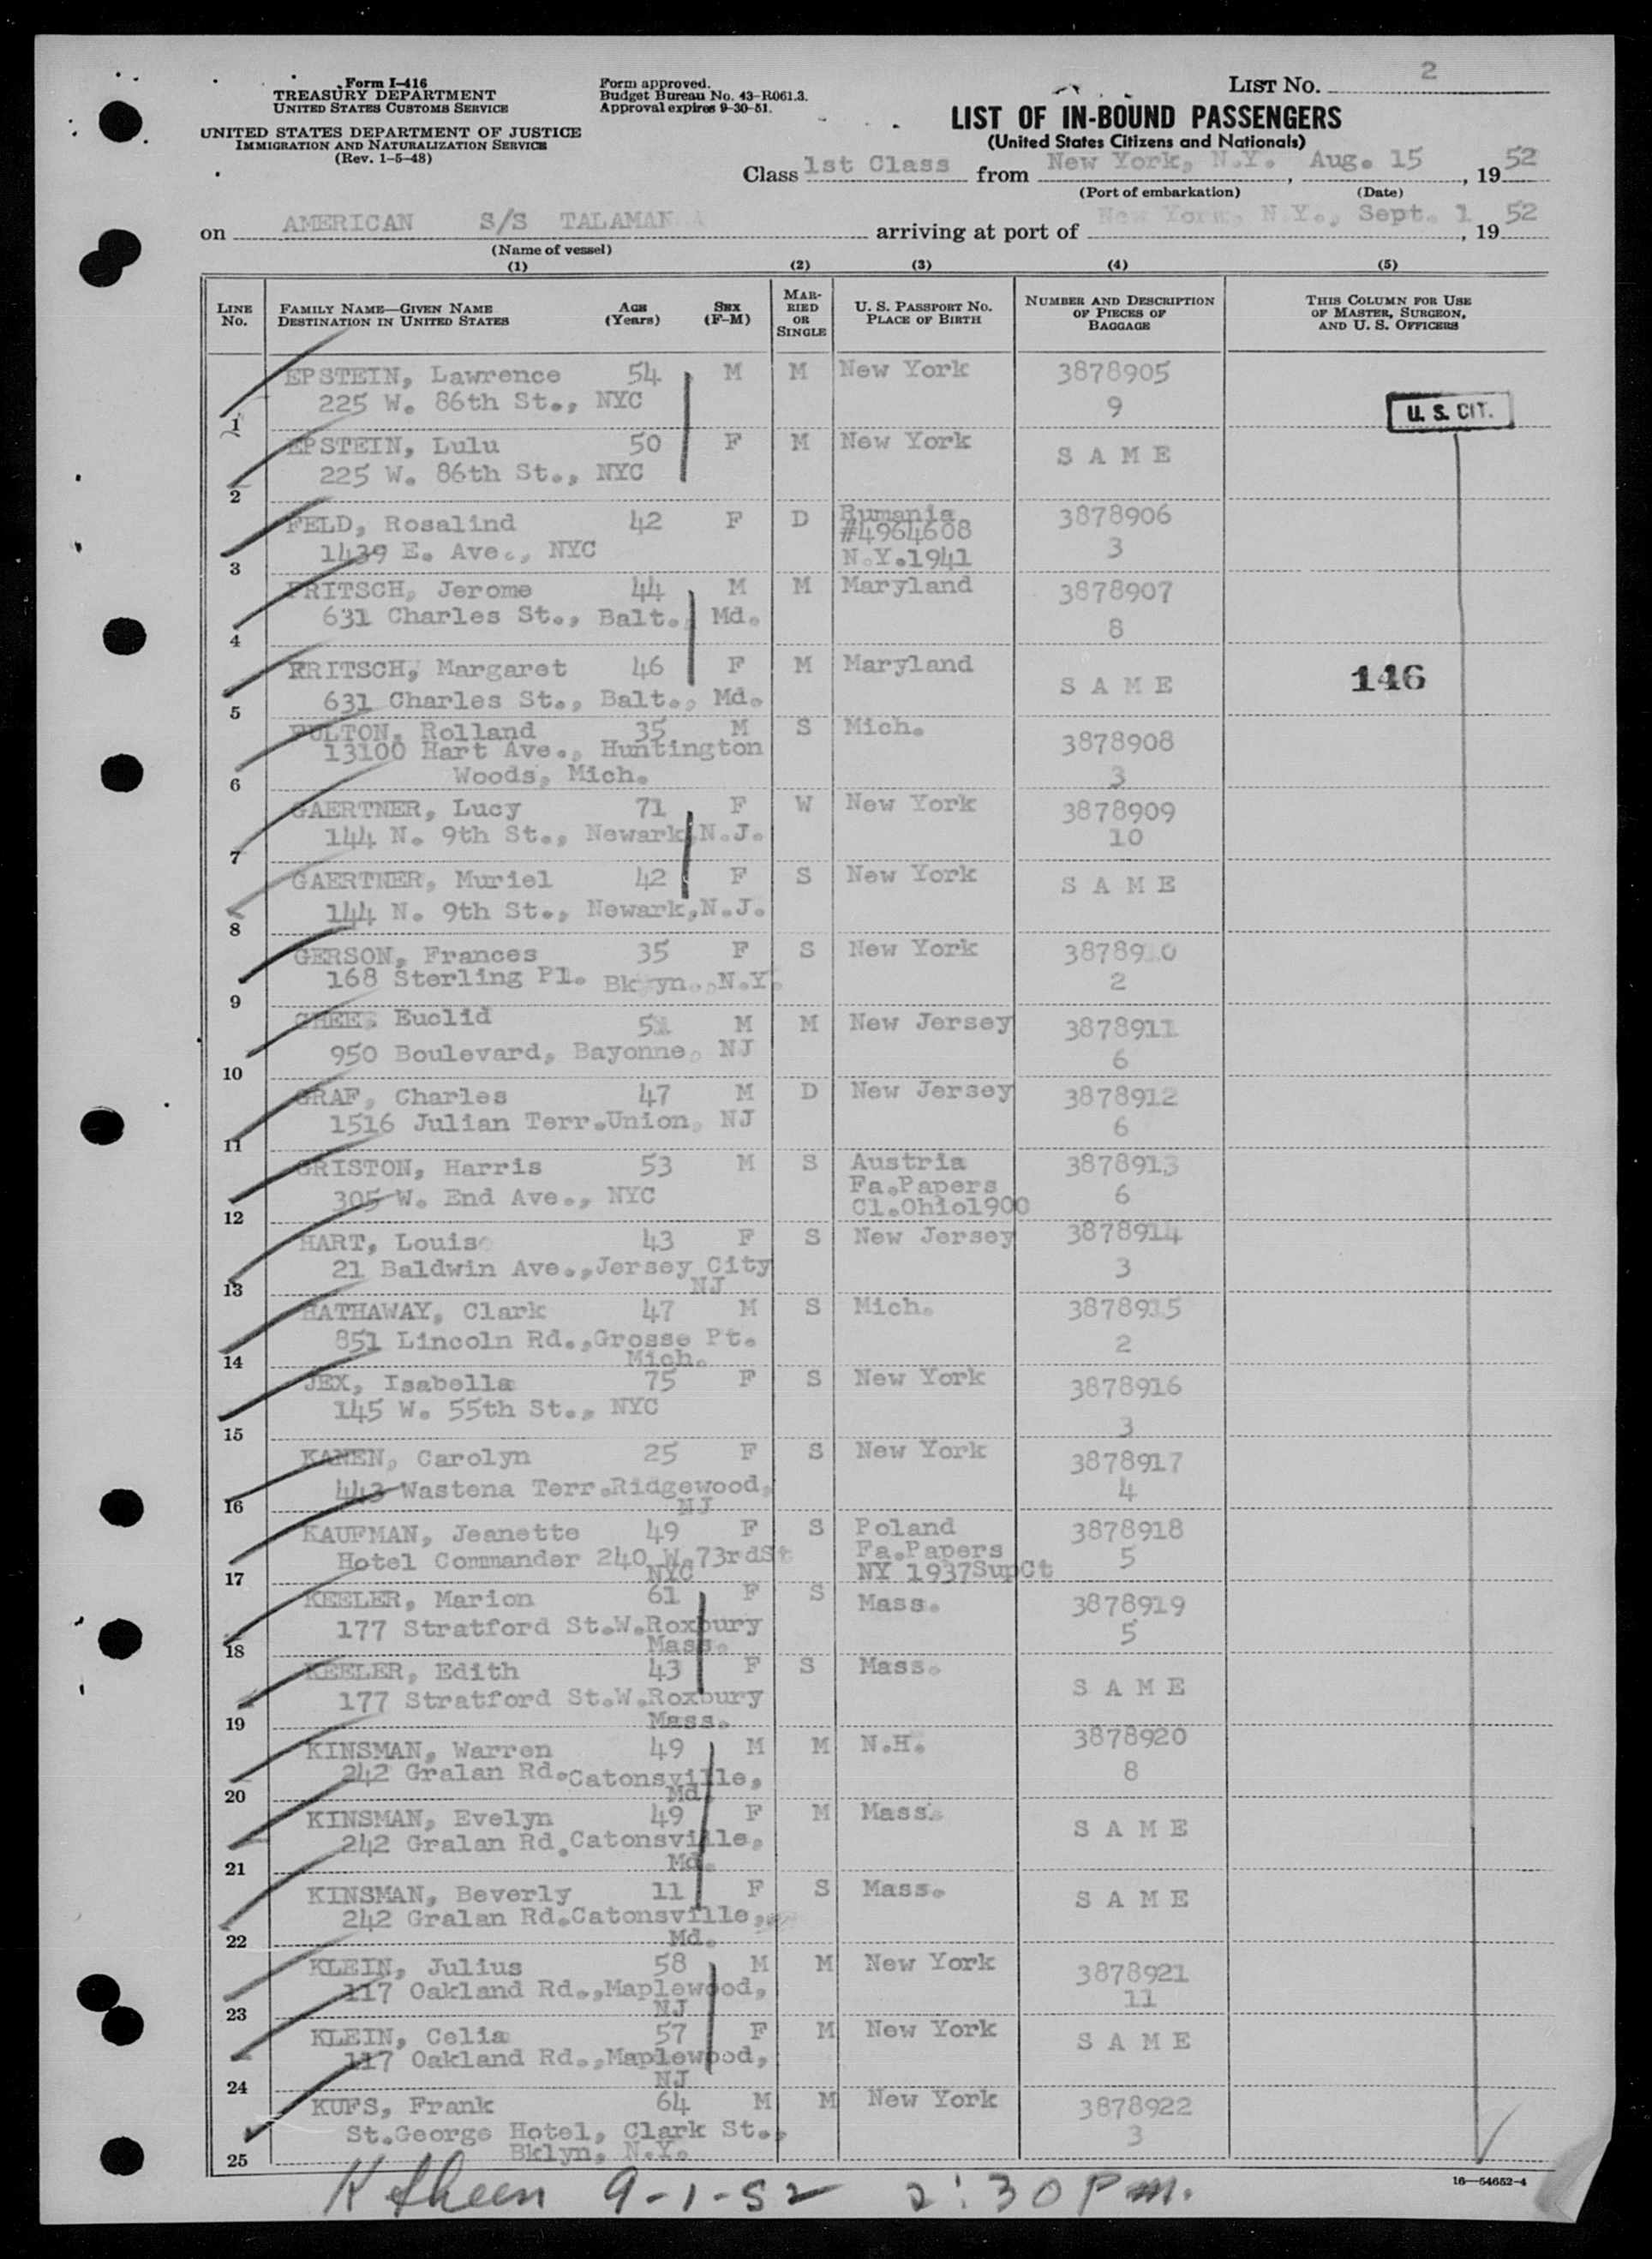 Form I-416
TREASURY DEPARTMENT
UNITED STATES CUSTOMS SERVICE
UNITED STATES DEPARTMENT OF JUSTICE
IMMIGRATION AND NATURALIZATION SERVICE
(Rev. 1-5-48)
Form approved.
Budget Bureau No. 43-R061.3.
Approval expires 9-30-51.
LIST NO. 2
LIST OF IN-BOUND PASSENGERS
(United States Citizens and Nationals)
Class 1st Class from New York, N.Y. , Aug. 15 , 19 52
(Port of embarkation) (Date)
on AMERICAN S/S TALAMAN A arriving at port of New York, N.Y., Sept. 1 , 19 52
(Name of vessel)
(1) (2) (3) (4) (5)
LINE No. FAMILY NAME—GIVEN NAME DESTINATION IN UNITED STATES AGE (Years) SEX (F-M) MARRIED OR SINGLE U. S. PASSPORT NO. PLACE OF BIRTH NUMBER AND DESCRIPTION OF PIECES OF BAGGAGE THIS COLUMN FOR USE OF MASTER, SURGEON, AND U. S. OFFICERS
EPSTEIN, Lawrence 54 M M New York 3878905
1 225 W. 86th St., NYC 9 U. S. CIT.
EPSTEIN, Lulu 50 F M New York SAME
2 225 W. 86th St., NYC
FELD, Rosalind 42 F D Rumania 3878906
#4964608
3 1439 E. Ave., NYC N.Y.1941 3
FRITSCH, Jerome 44 M M Maryland 3878907
4 631 Charles St., Balt., Md. 8
FRITSCH, Margaret 46 F M Maryland SAME 146
5 631 Charles St., Balt., Md.
FULTON, Rolland 35 M S Mich. 3878908
13100 Hart Ave., Huntington
6 Woods, Mich. 3
GAERTNER, Lucy 71 F W New York 3878909
7 144 N. 9th St., Newark, N.J. 10
GAERTNER, Muriel 42 F S New York SAME
8 144 N. 9th St., Newark,N.J.
GERSON, Frances 35 F S New York 3878910
9 168 Sterling Pl. Bklyn., N.Y. 2
Euclid M M New Jersey 3878911
10 950 Boulevard, Bayonne, NJ 6
GRAF, Charles 47 M D New Jersey 3878912
11 1516 Julian Terr.Union, NJ 6
GRISTON, Harris 53 M S Austria 3878913
Fa.Papers
12 305 W. End Ave., NYC Cl.Ohio1900 6
HART, Louise 43 F S New Jersey 3878914
21 Baldwin Ave.,Jersey City 3
13 NJ
HATHAWAY, Clark 47 M S Mich. 3878915
851 Lincoln Rd.,Grosse Pt. 2
14 Mich.
JEX, Isabella 75 F S New York 3878916
15 145 W. 55th St., NYC 3
KANEN, Carolyn 25 F S New York 3878917
443 Wastena Terr.Ridgewood, 4
16 NJ
KAUFMAN, Jeanette 49 F S Poland 3878918
Hotel Commander 240 W.73rdSt Fa.Papers 5
17 NYC NY 1937SupCt
KEELER, Marion 61 F S Mass. 3878919
177 Stratford St.W.Roxbury 5
18 Mass.
KEELER, Edith 43 F S Mass. SAME
177 Stratford St.W.Roxbury
19 Mass.
KINSMAN, Warren 49 M M N.H. 3878920
242 Gralan Rd.Catonsville, 8
20 Md.
KINSMAN, Evelyn 49 F M Mass. SAME
242 Gralan Rd.Catonsville,
21 Md.
KINSMAN, Beverly 11 F S Mass. SAME
242 Gralan Rd.Catonsville,
22 Md.
KLEIN, Julius 58 M M New York 3878921
117 Oakland Rd.,Maplewood, 11
23 NJ
KLEIN, Celia 57 F M New York SAME
117 Oakland Rd.,Maplewood,
24 NJ
KUFS, Frank 64 M M New York 3878922
St.George Hotel, Clark St., 3
25 Bklyn, N.Y.
9-1-52 2:30 P.m.
16—54652-4